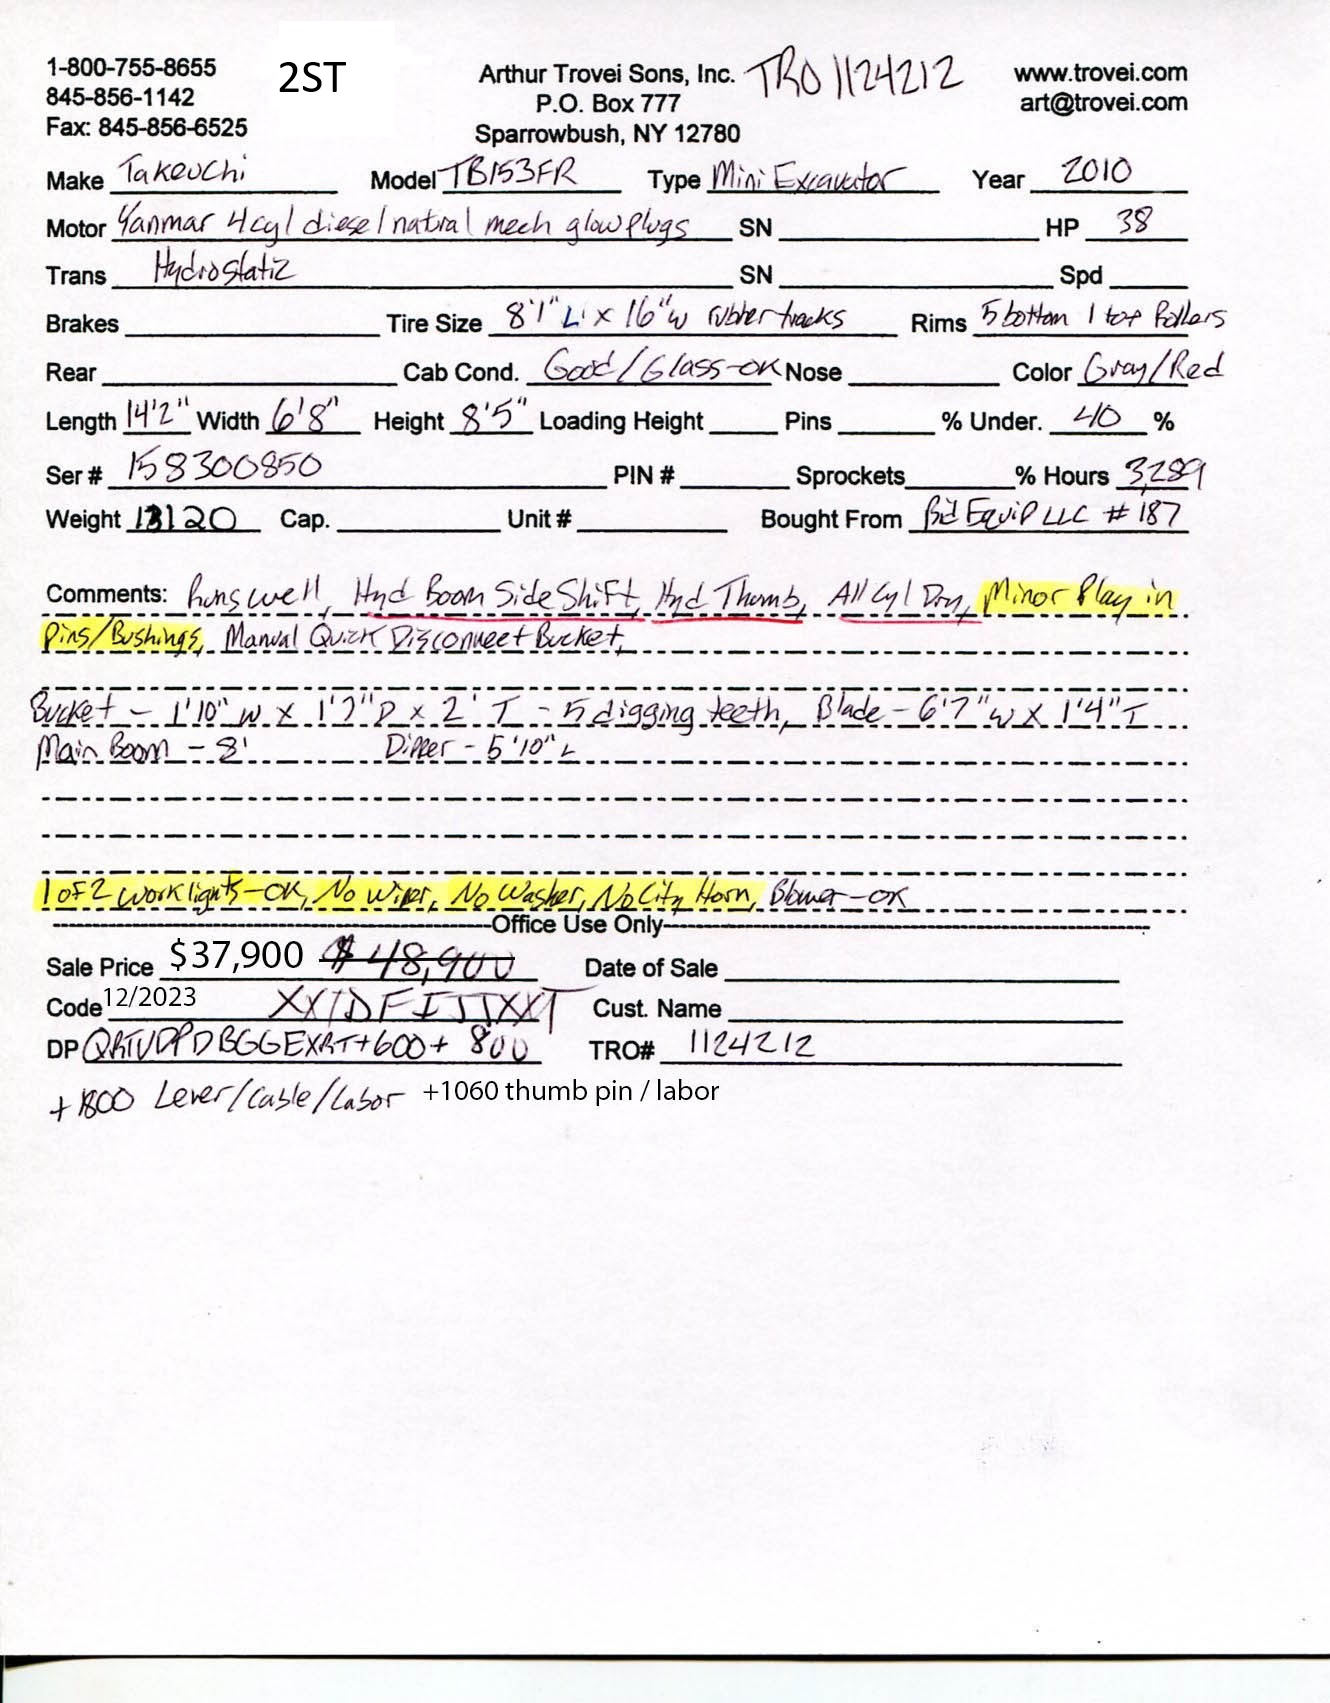 1-800-755-8655 2ST Arthur Trovei Sons, Inc. TRO 1124212 www.trovei.com
845-856-1142 P.O. Box 777 art@trovei.com
Fax: 845-856-6525 Sparrowbush, NY 12780
Make Takeuchi Model TB153FR Type Mini Excavator Year 2010
Motor Yanmar 4cyl diesel natural mech glow plugs SN HP 38
Trans Hydrostatic SN Spd
Brakes Tire Size 8'1" L x 16"w rubber tracks Rims 5 bottom 1 top Rollers
Rear Cab Cond. Good/Glass-OK Nose Color Gray/Red
Length 14'2" Width 6'8" Height 8'5" Loading Height Pins % Under. 40 %
Ser # 158300850 PIN # Sprockets % Hours 3,289
Weight 13120 Cap. Unit # Bought From Bid Equip LLC # 187
Comments: Runs well, Hyd Boom Side Shift, Hyd Thumb, All Cyl Dry, Minor Play in
Pins/Bushings, Manual Quick Disconnect Bucket,
Bucket - 1'10" W x 1'7" D x 2' T - 5 digging teeth, Blade - 6'7" W x 1'4" T
Main Boom - 8' Dipper - 5'10" L
1 of 2 worklights-OK, No Wiper, No Washer, No City Horn, Blower-OK
Office Use Only
Sale Price $37,900 $48,900 Date of Sale
Code 12/2023 Cust. Name
DP +600+ 800 TRO# 1124212
+1800 Lever/Cable/Labor +1060 thumb pin / labor